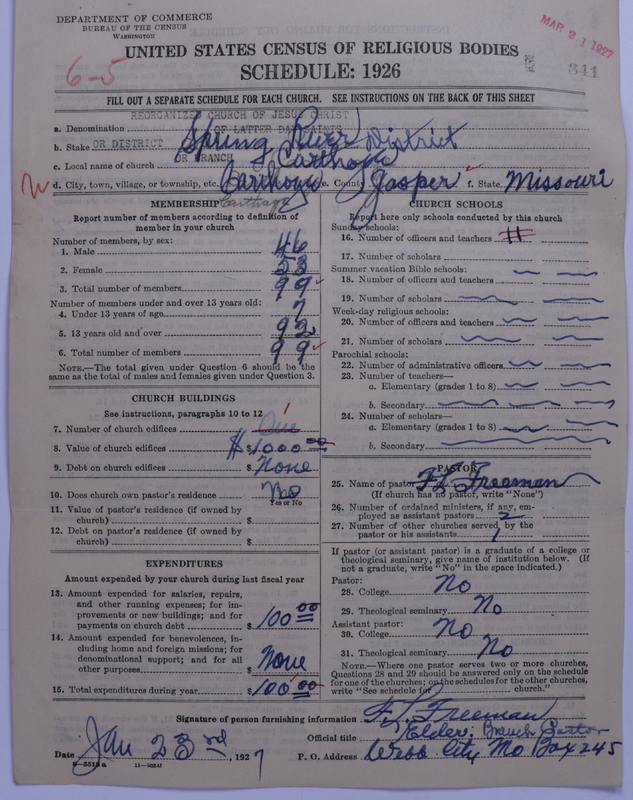 DEPARTMENT OF COMMERCE
BUREAU OF THE CENSUS
WASHINGTON
MAR 21 1927
6-5
UNITED STATES CENSUS OF RELIGIOUS BODIES
SCHEDULE: 1926
341
FILL OUT A SEPARATE SCHEDULE FOR EACH CHURCH. SEE INSTRUCTIONS ON THE BACK OF THIS SHEET
REORGANIZED CHURCH OF JESUS CHRIST
a. Denomination OF LATTER DAY SAINTS
b. Stake OR DISTRICT Spring River District
c. Local name of church OR BRANCH Carthage
d. City, town, village, or township, etc. Carthage e. County Jasper f. State Missouri
Carthage
MEMBERSHIP
Report number of members according to definition of
member in your church
Number of members, by sex:
1. Male 46
2. Female 53
3. Total number of members 99
Number of members under and over 13 years old:
4. Under 13 years of age 7
5. 13 years old and over 92
6. Total number of members 99
NOTE.—The total given under Question 6 should be the
same as the total of males and females given under Question 3.
CHURCH BUILDINGS
See instructions, paragraphs 10 to 12
7. Number of church edifices One 1
8. Value of church edifices $ $1000 00
9. Debt on church edifices $ None
10. Does church own pastor's residence No
Yes or No
11. Value of pastor's residence (if owned by
church) $
12. Debt on pastor's residence (if owned by
church) $
EXPENDITURES
Amount expended by your church during last fiscal year
13. Amount expended for salaries, repairs,
and other running expenses; for im-
provements or new buildings; and for
payments on church debt $ 100 00
14. Amount expended for benevolences, in-
cluding home and foreign missions; for
denominational support; and for all
other purposes $ None
15. Total expenditures during year $ 100 00
CHURCH SCHOOLS
Report here only schools conducted by this church
Sunday schools:
16. Number of officers and teachers
17. Number of scholars
Summer vacation Bible schools:
18. Number of officers and teachers
19. Number of scholars
Week-day religious schools:
20. Number of officers and teachers
21. Number of scholars
Parochial schools:
22. Number of administrative officers
23. Number of teachers—
a. Elementary (grades 1 to 8)
b. Secondary
24. Number of scholars—
a. Elementary (grades 1 to 8)
b. Secondary
PASTOR
25. Name of pastor F L Freeman
(If church has no pastor, write "None")
26. Number of ordained ministers, if any, em-
ployed as assistant pastors 2
27. Number of other churches served by the
pastor or his assistants 1
If pastor (or assistant pastor) is a graduate of a college or
theological seminary, give name of institution below. (If
not a graduate, write "No" in the space indicated.)
Pastor:
28. College No
29. Theological seminary No
Assistant pastor:
30. College No
31. Theological seminary No
NOTE.—Where one pastor serves two or more churches,
Questions 28 and 29 should be answered only on the schedule
for one of the churches; on the schedules for the other churches,
write "See schedule for church."
Signature of person furnishing information F. L. Freeman
Official title Elder. Branch Pastor
Date Jan 23rd, 1927 P. O. Address Webb City Mo Box 245